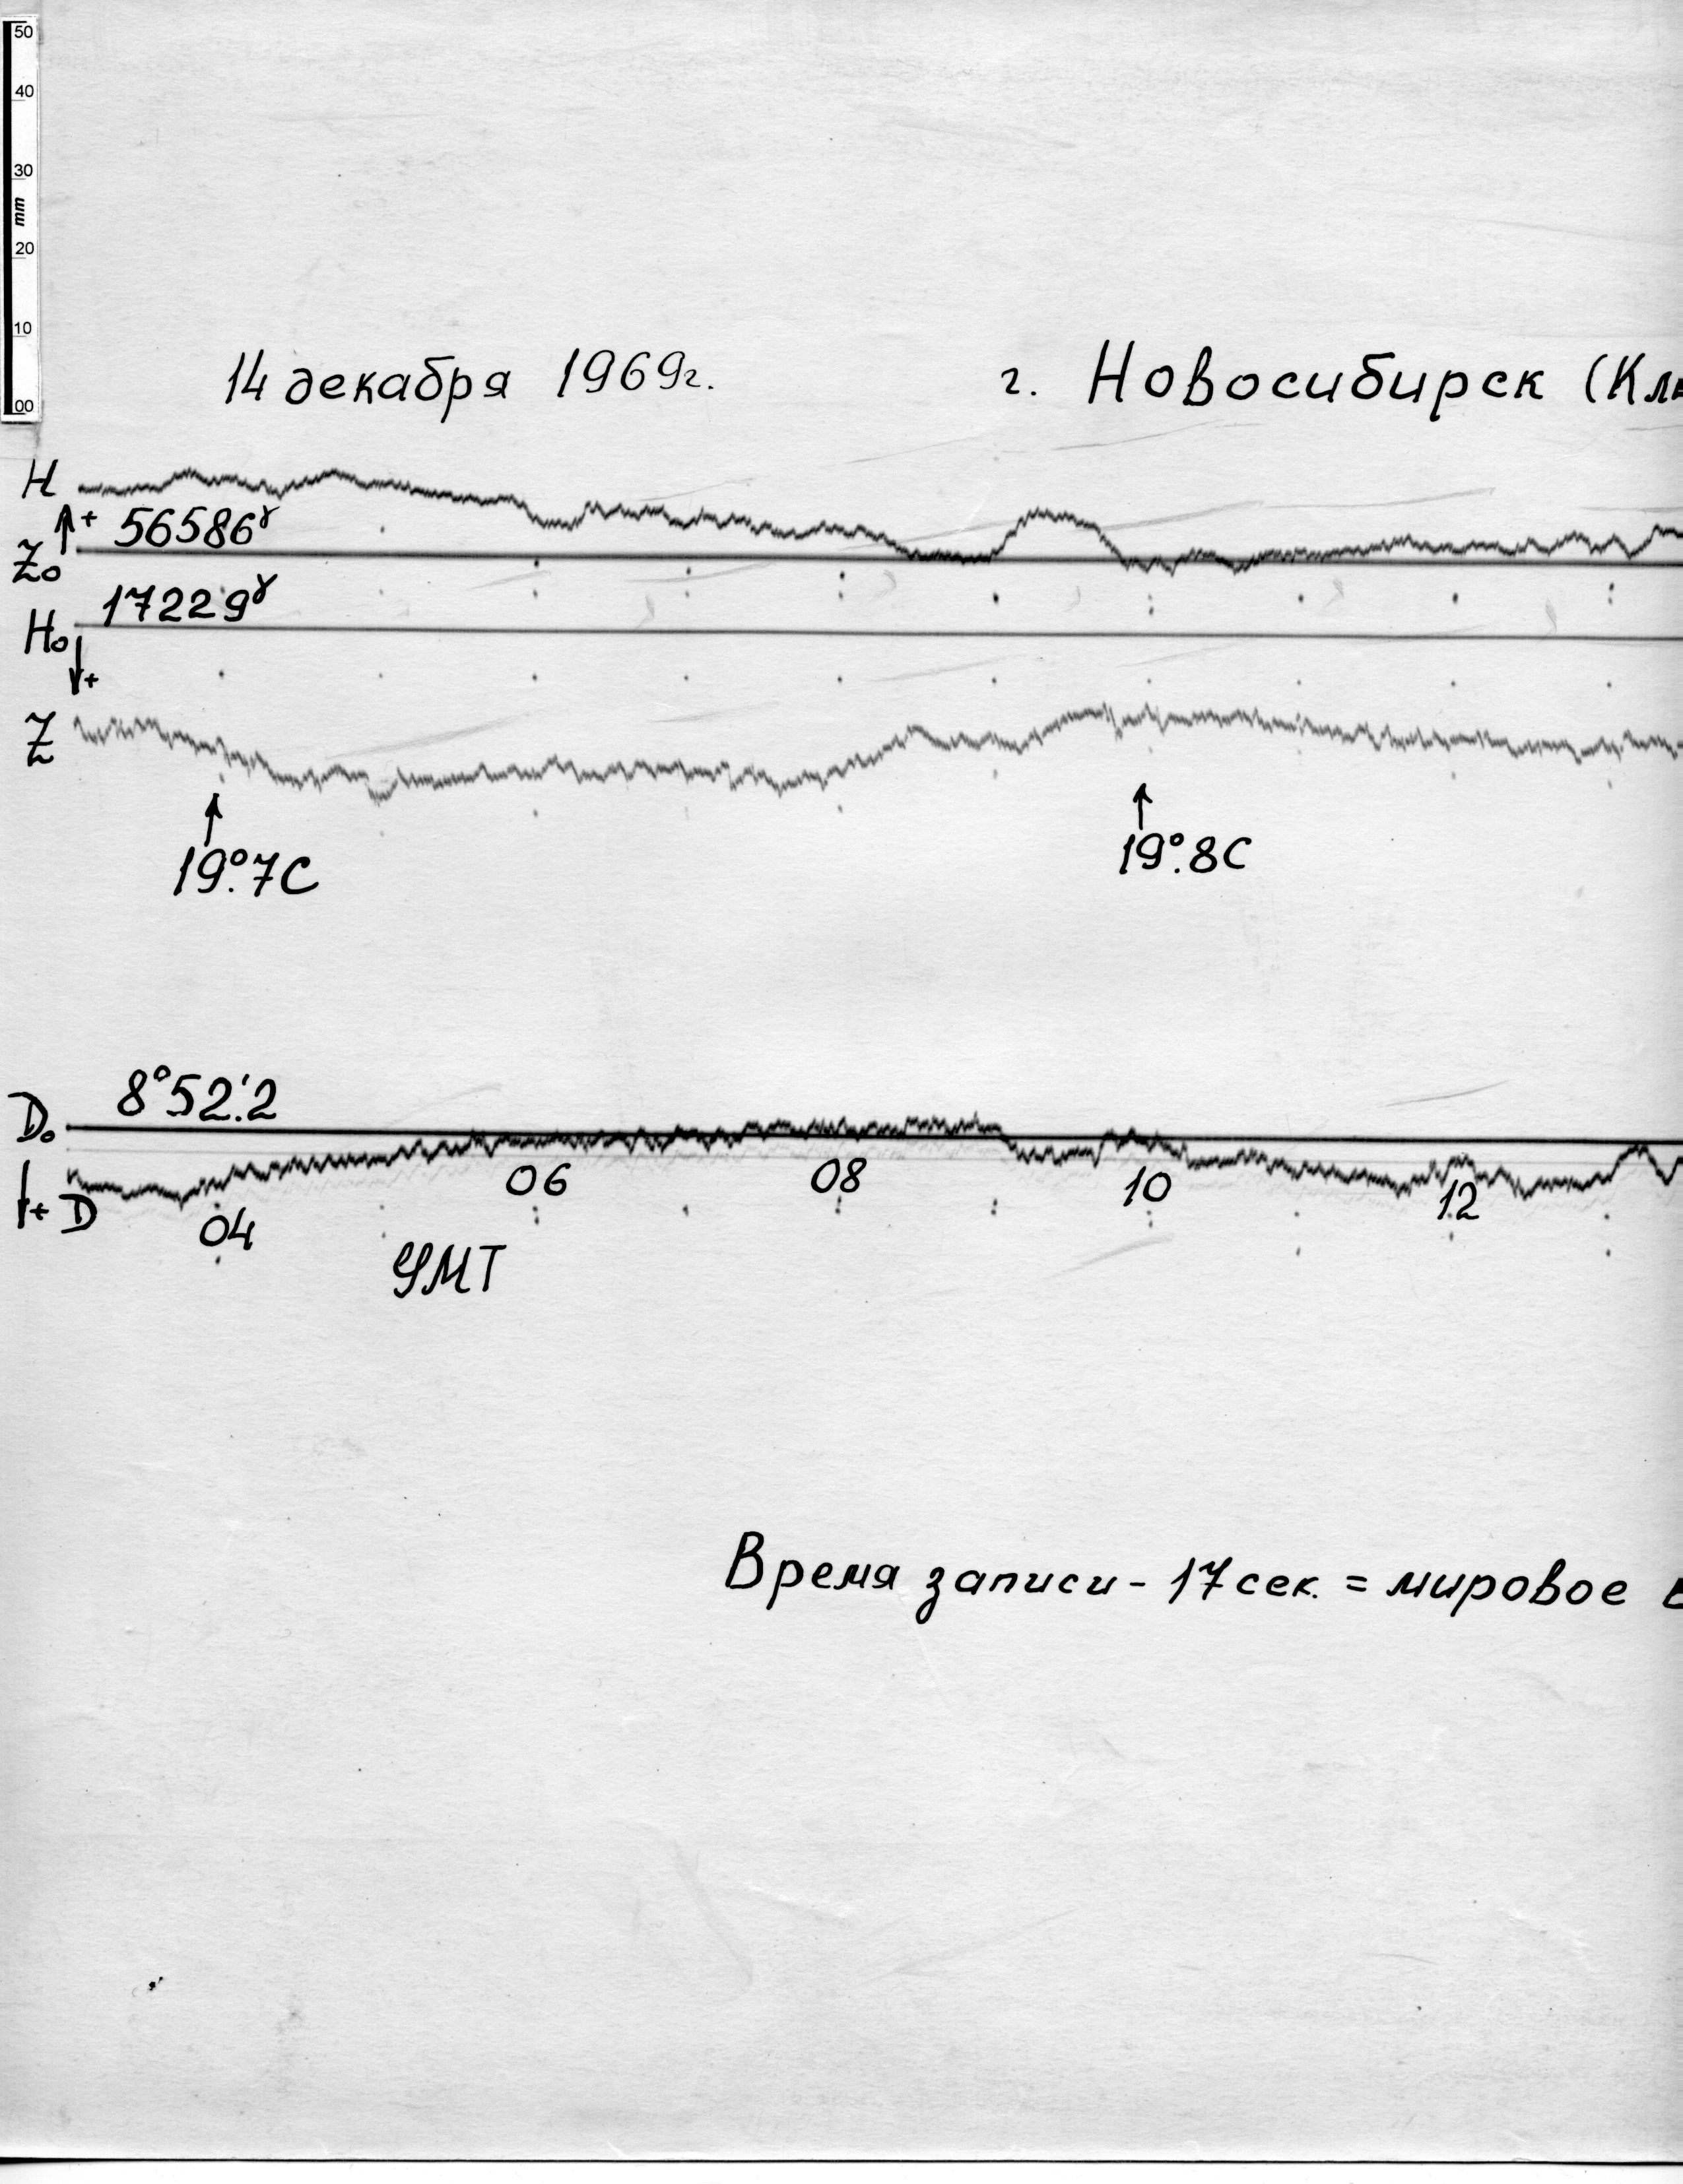 50
40
30
mm
20
10
00
14 декабря 1969г.
г. Новосибирск (Кл
H
+ 56586γ
Z₀
17229γ
H₀
+
Z
19°.7C
19°.8C
8°52'.2
D₀
+ D
04
06
08
10
12
GMT
Время записи - 17 сек. = мировое